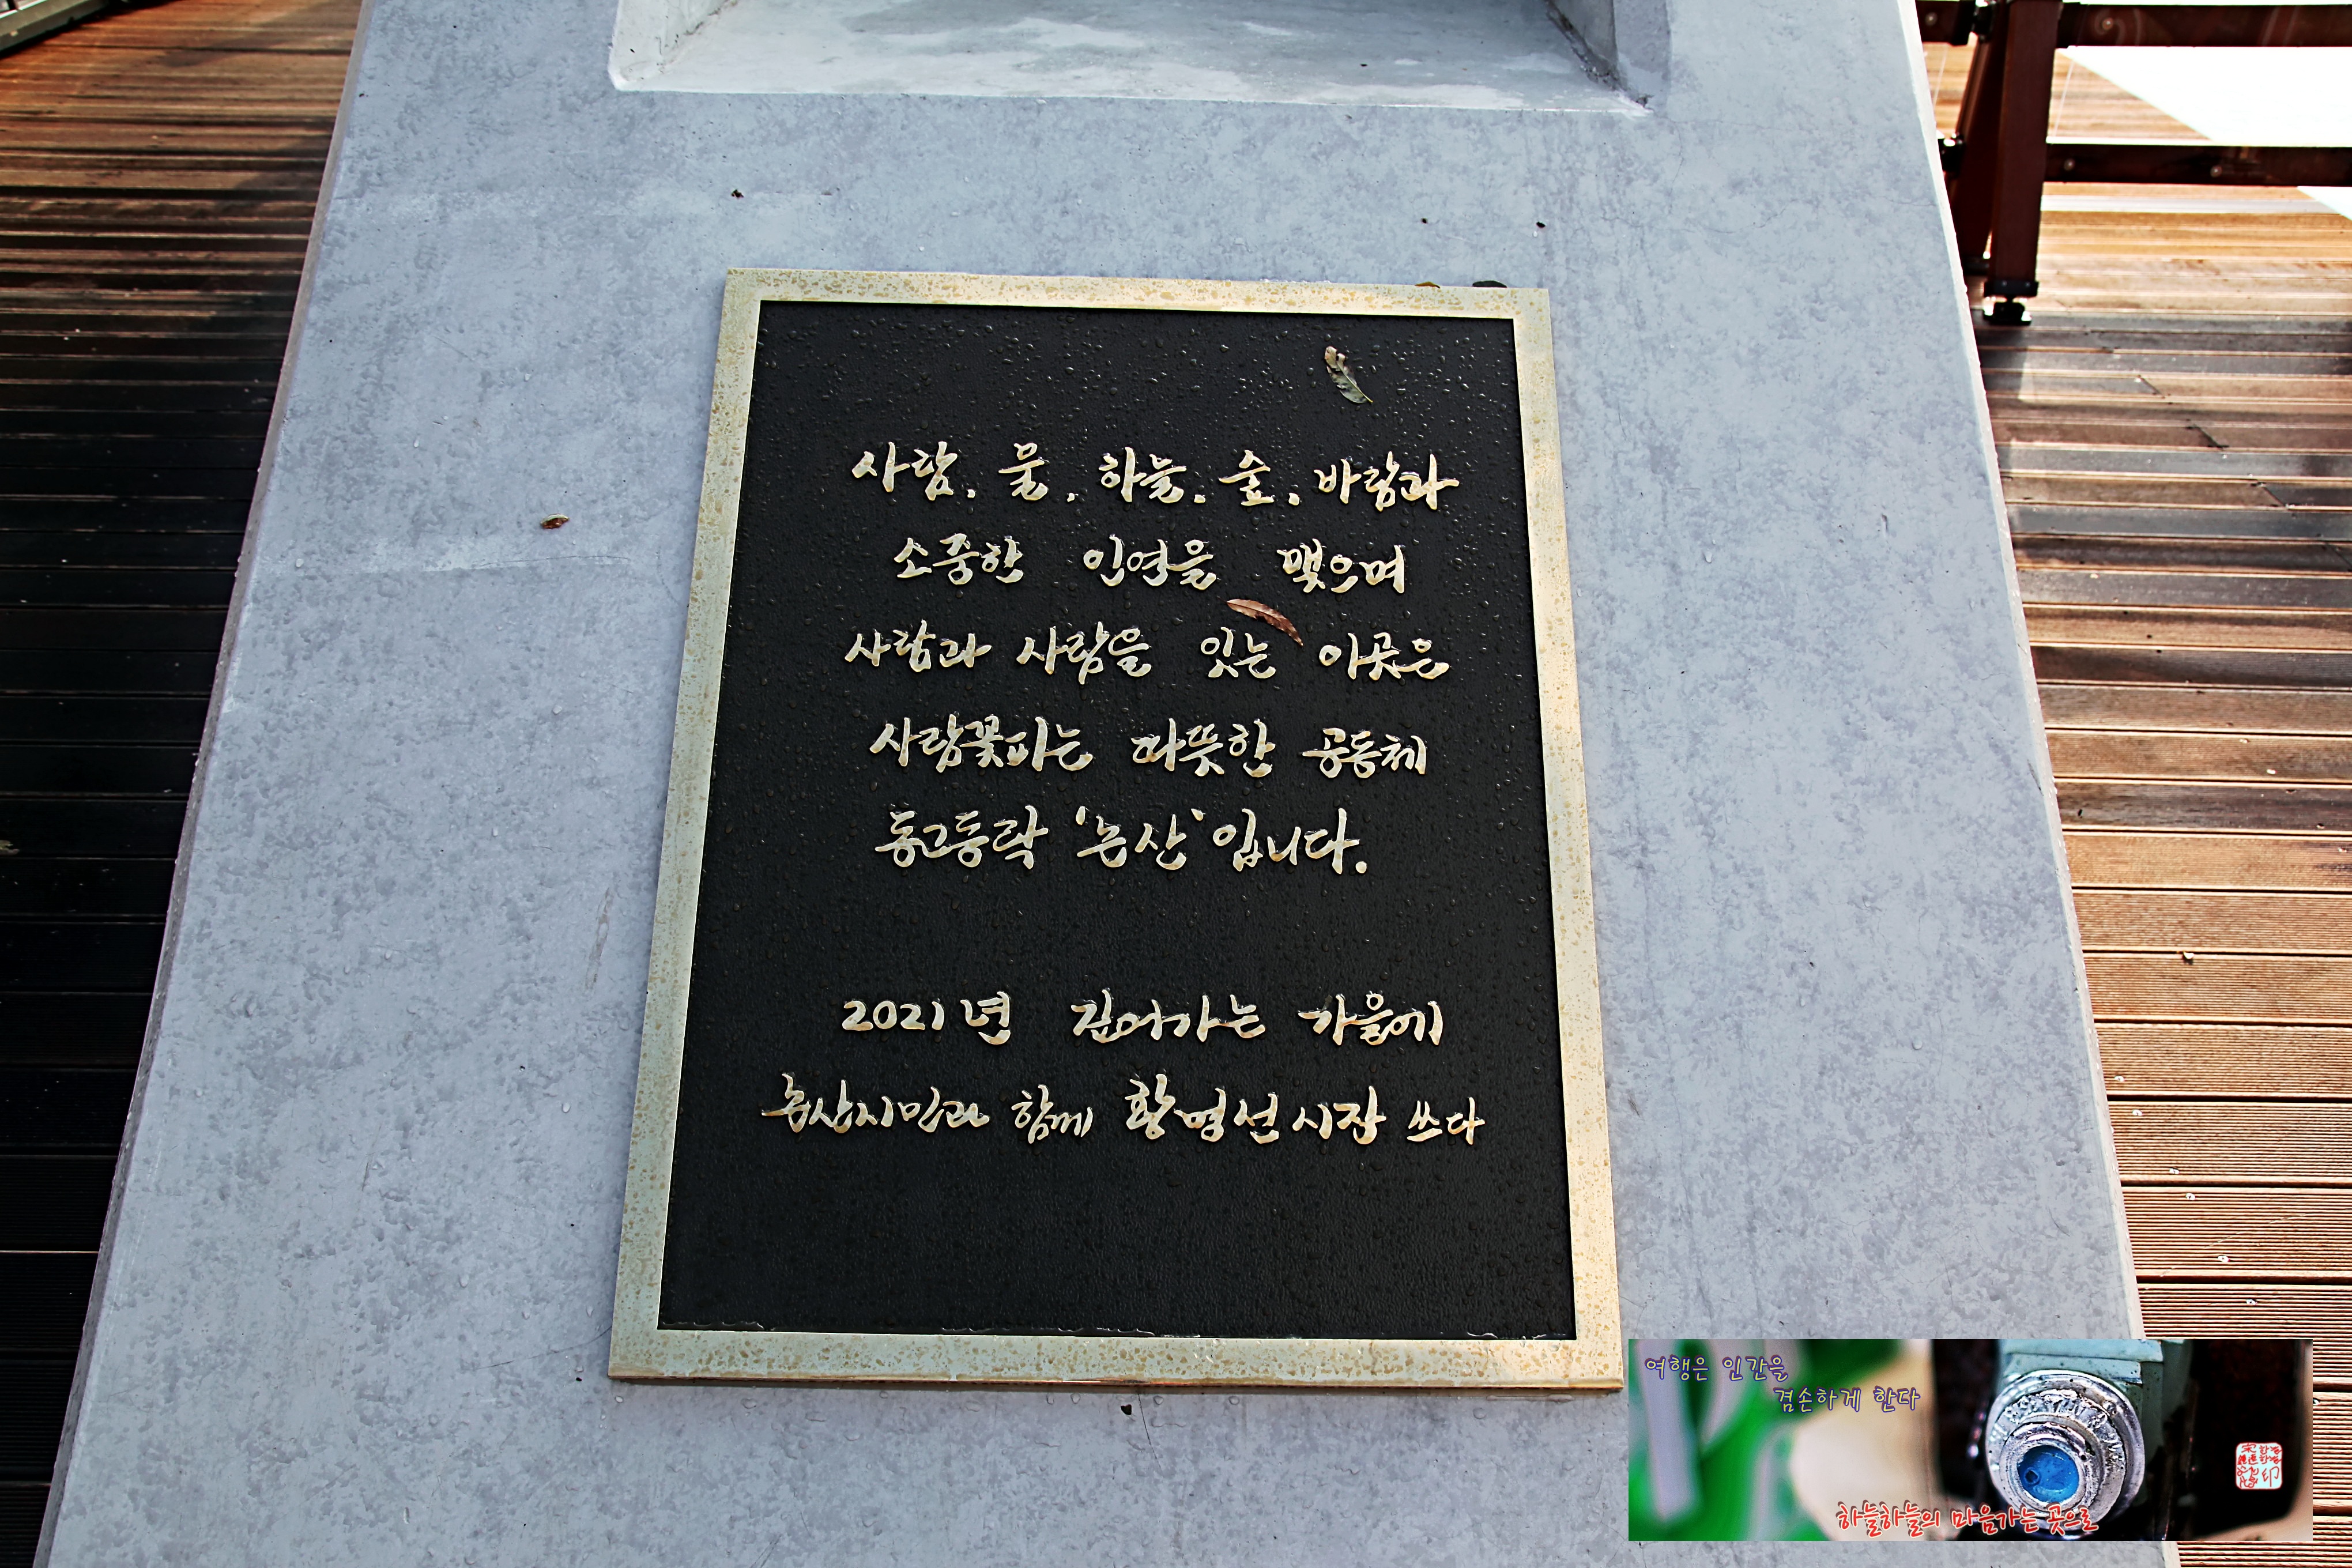 사람. 물. 하늘. 숲. 바람과
소중한 인연을 맺으며
사람과 사람을 잇는 이곳은
사람꽃피는 따뜻한 공동체
동고동락 '논산'입니다.
2021년 깊어가는 가을에
논산시민과 함께 황명선시장 쓰다
여행은 인간을
겸손하게 한다
하늘하늘의 마음가는 곳으로